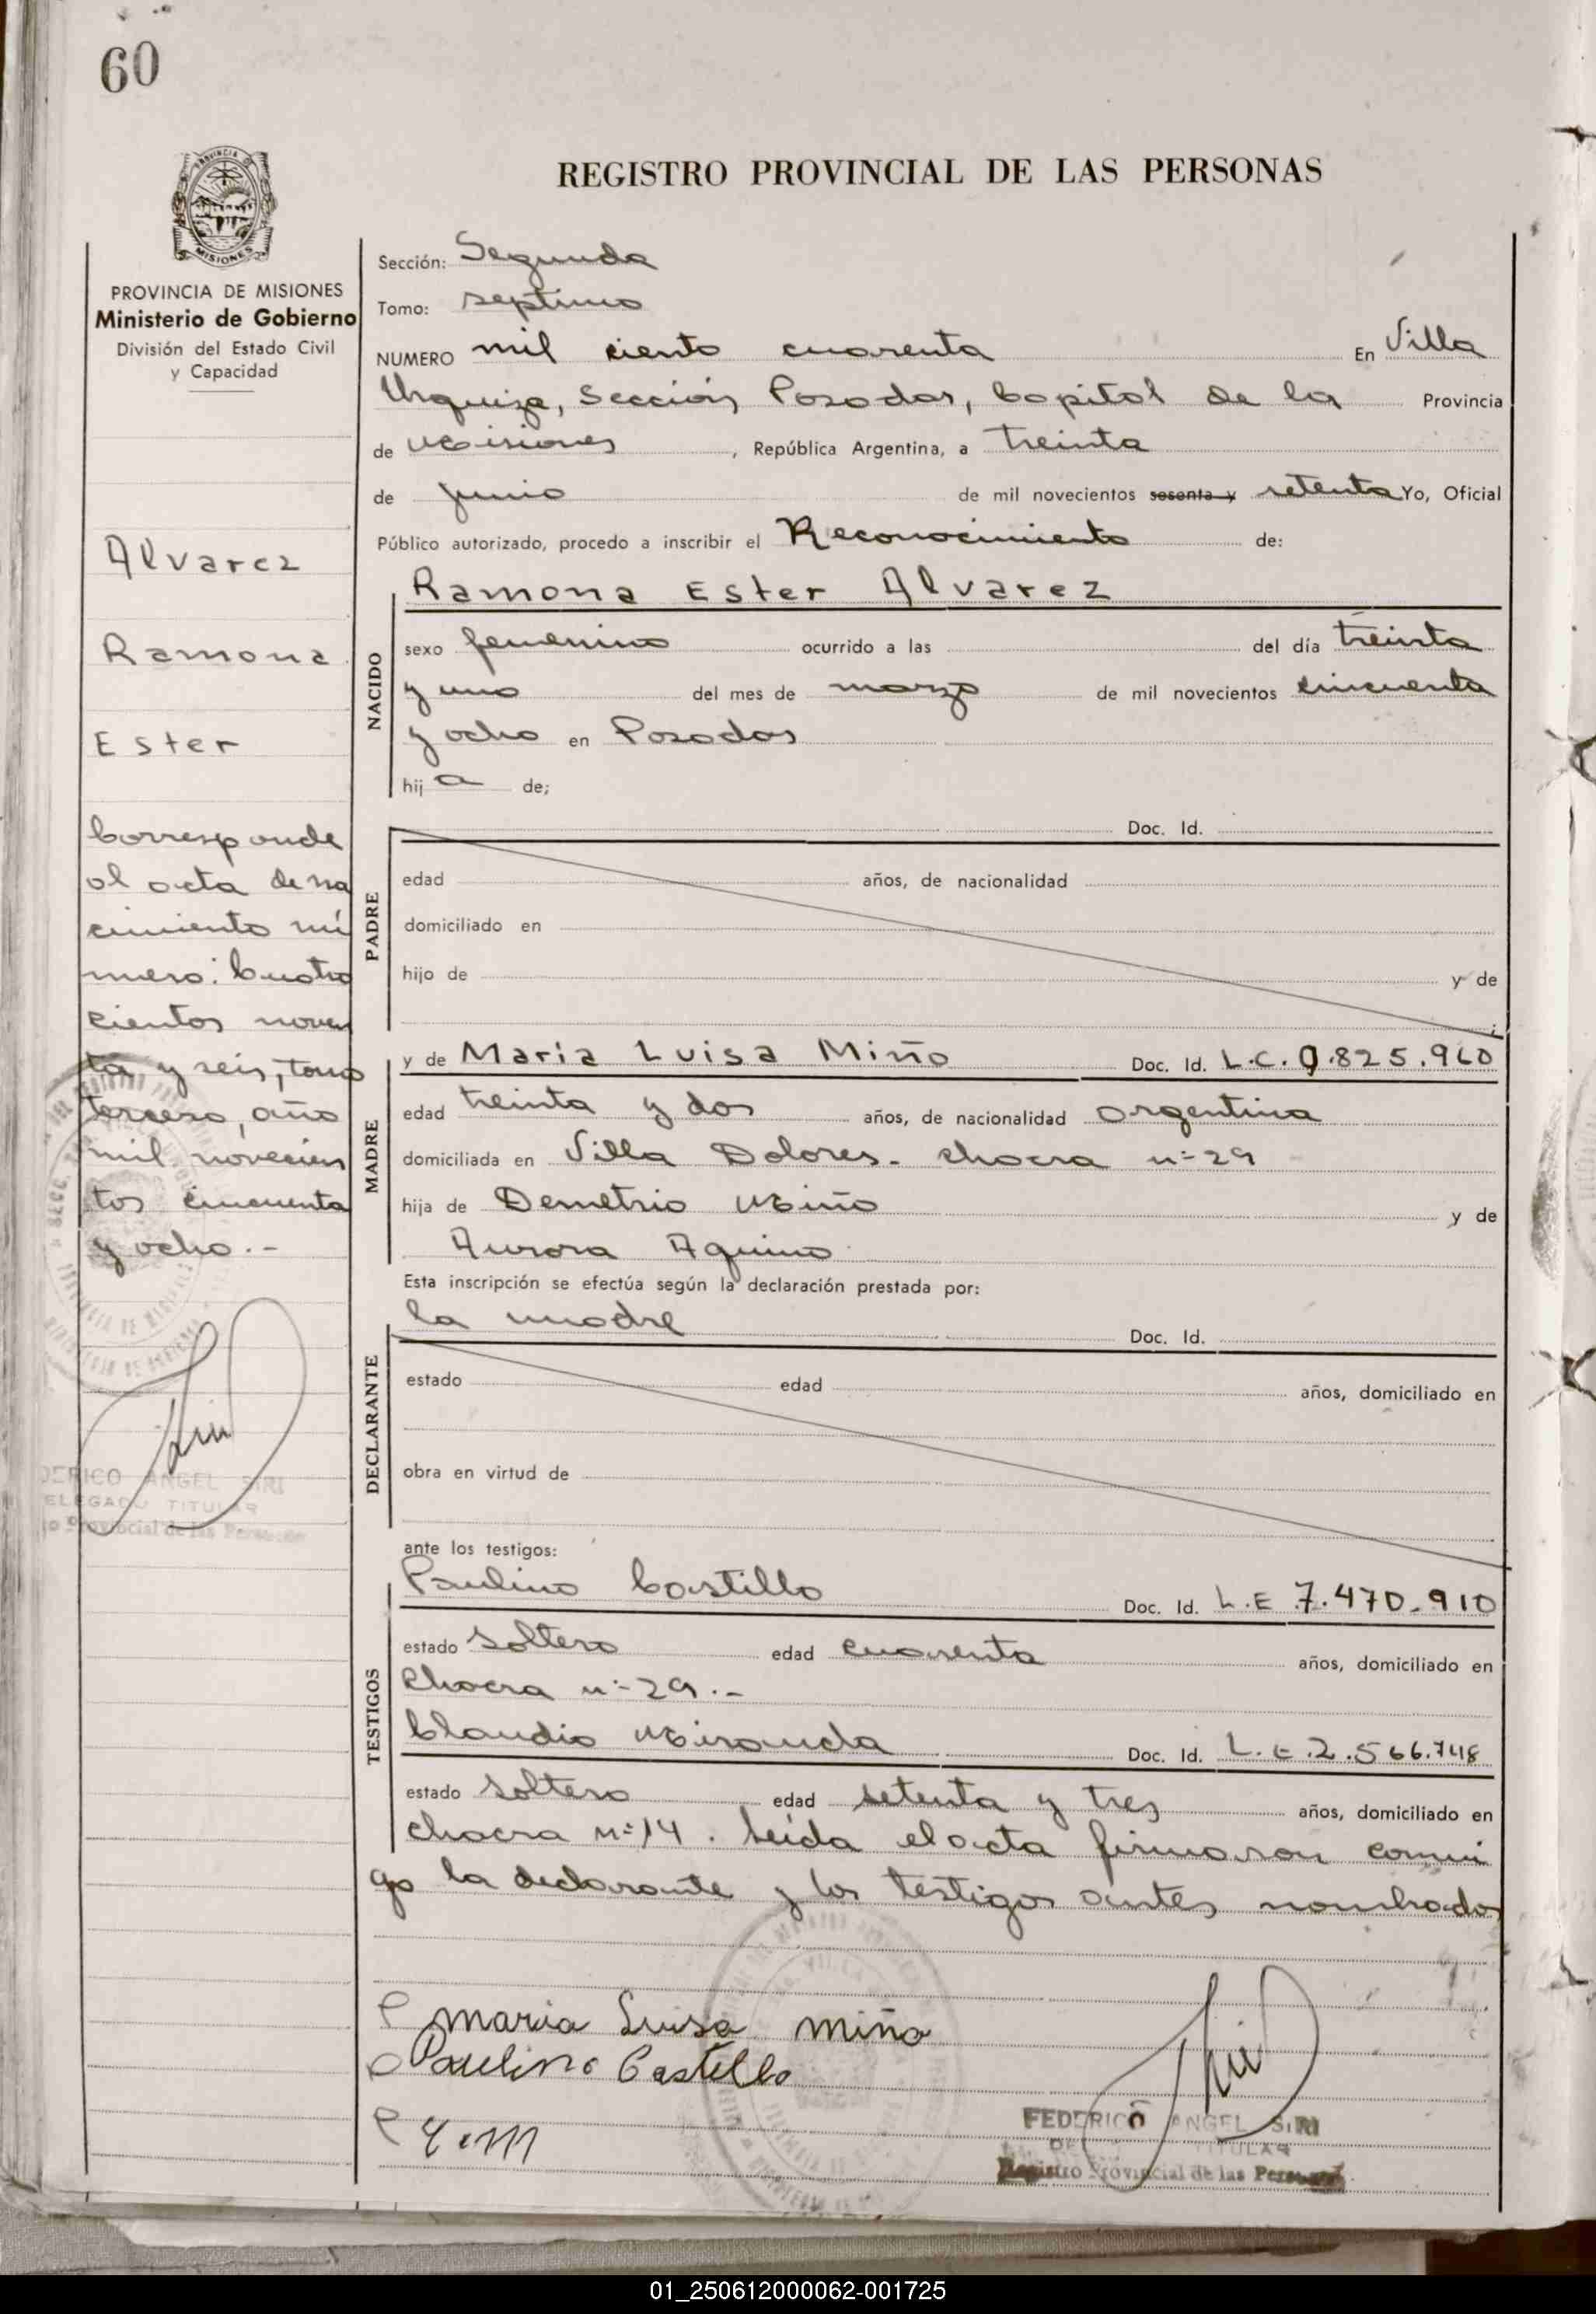 60
REGISTRO PROVINCIAL DE LAS PERSONAS
MISIONES
PROVINCIA DE MISIONES
Ministerio de Gobierno
División del Estado Civil
y Capacidad
Alvarez
Ramona
Ester
Corresponde
al acta de na
cimiento nú
mero: Cuatro
cientos noven
ta y seis, tomo
tercero, año
mil novecien
tos cincuenta
y ocho.-
ANGEL SIRI
TITULAR
Provincial de las
Sección: Segunda
Tomo: septimo
NUMERO mil ciento cuarenta En Villa
Urquiza, Sección Posadas, Capital de la Provincia
de Misiones, República Argentina, a treinta
de junio de mil novecientos sesenta y setenta Yo, Oficial
Público autorizado, procedo a inscribir el Reconocimiento de:
NACIDO
Ramona Ester Alvarez
sexo femenino ocurrido a las del día treinta
y uno del mes de marzo de mil novecientos cincuenta
y ocho en Posadas
hij a de;
PADRE
Doc. Id.
edad años, de nacionalidad
domiciliado en
hijo de y de
MADRE
y de María Luisa Miño Doc. Id. L.C. 0.825.960
edad treinta y dos años, de nacionalidad argentina
domiciliada en Villa Dolores - chacra n=29
hija de Demetrio Miño y de
Aurora Aquino
Esta inscripción se efectúa según la declaración prestada por:
la madre Doc. Id.
DECLARANTE
estado edad años, domiciliado en
obra en virtud de
ante los testigos:
TESTIGOS
Paulino Castillo Doc. Id. L.E 7.470.910
estado soltero edad cuarenta años, domiciliado en
chacra n=29.-
Claudio Miranda Doc. Id. L.E.2.566.748
estado soltero edad setenta y tres años, domiciliado en
chacra n=14. Leída el acta firmaron conmi
go la declarante y los testigos antes nombrados
maria Luisa miño
Paulino Castillo
FEDERICO ANGEL SIRI
TITULAR
Registro Provincial de las Personas
01_250612000062-001725